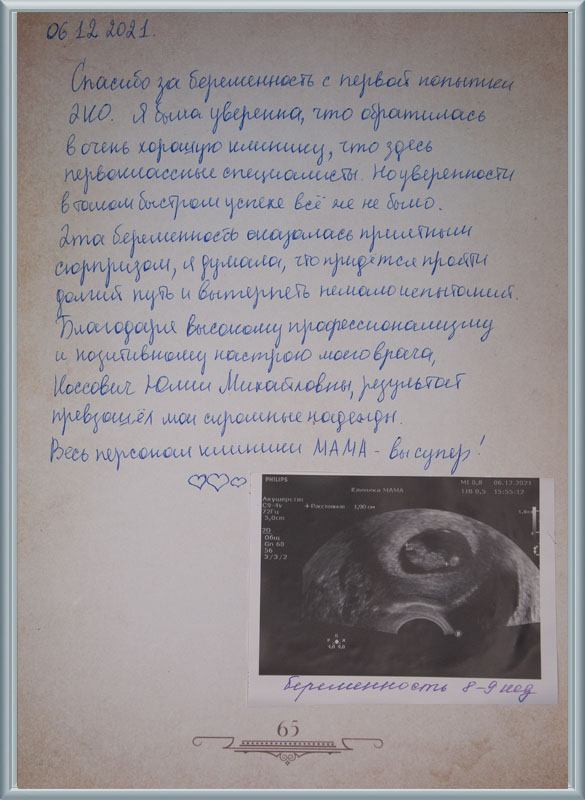 06.12.2021.
Спасибо за беременность с первой попытки
ЭКО. Я была уверенна, что обратилась
в очень хорошую клинику, что здесь
первоклассные специалисты. Но уверенности
в таком быстром успехе всё же не было.
Эта беременность оказалась приятным
сюрпризом, я думала, что придётся пройти
долгий путь и вытерпеть немало испытаний.
Благодаря высокому профессионализму
и позитивному настрою моего врача,
Коссович Юлии Михайловны, результат
превзошёл мои скромные надежды.
Весь персонал клиники МАМА - вы супер!
PHILIPS
MI 0,8 06.12.2021
Клиника МАМА
TIB 0,5 15:55:12
Акушерство
C9-4v
72Гц
5,0cm
+ Расстояние 1,90 cm
2D
Общ
Gn 60
56
3/3/2
беременность 8-9 нед
65